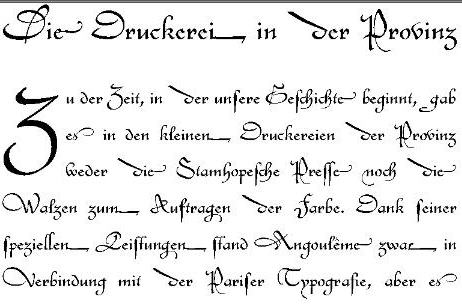 Die Druckerei in der Provinz
Zu der Zeit, in der unſere Geſchichte beginnt, gab
es in den kleinen Druckereien der Provinz
weder die Stanhopeſche Preſſe noch die
Walzen zum Auftragen der Farbe. Dank ſeiner
ſpeziellen Leiſtungen ſtand Angoulême zwar in
Verbindung mit der Pariſer Typografie, aber es